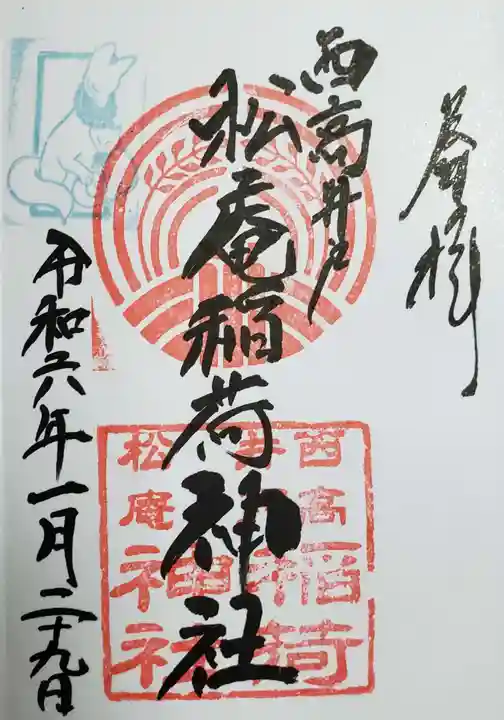 奉拝
西高井戸
松庵稲荷神社
令和六年一月二十九日
西高
井戸
松庵
稲荷
神社